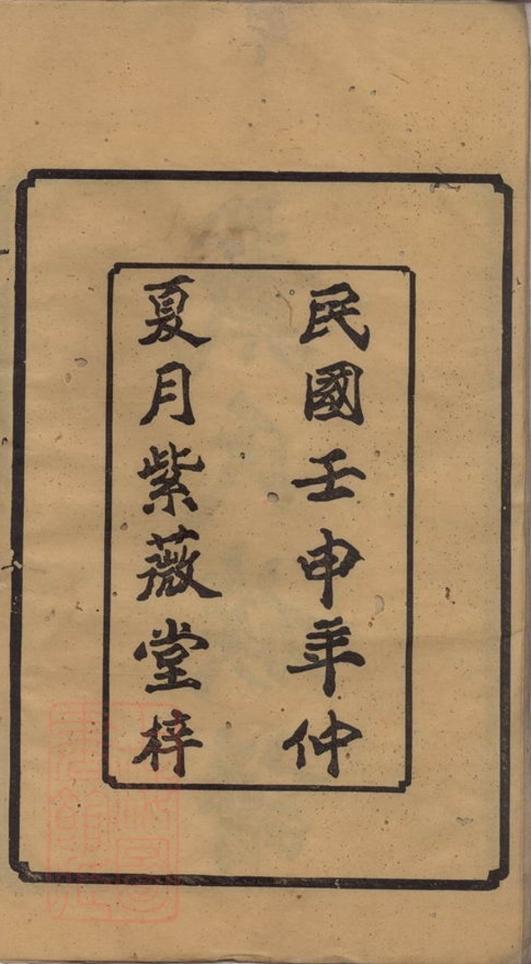 民國壬申年仲
夏月紫薇堂梓